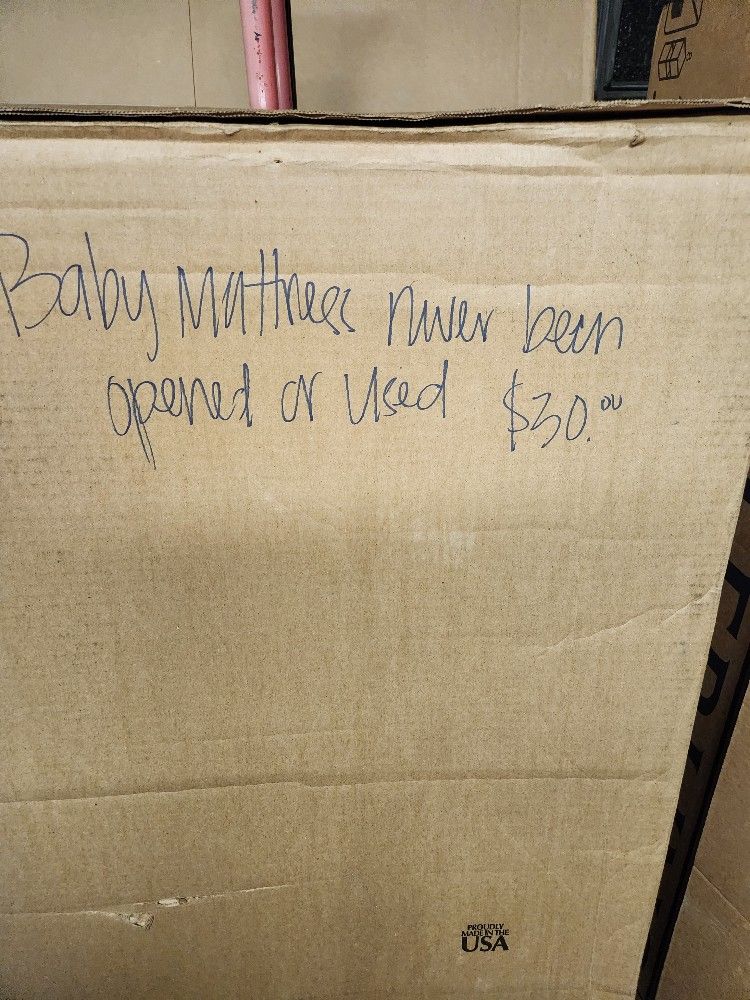 Baby Mattress never been
opened or Used $30.00
PROUDLY
MADE IN THE
USA